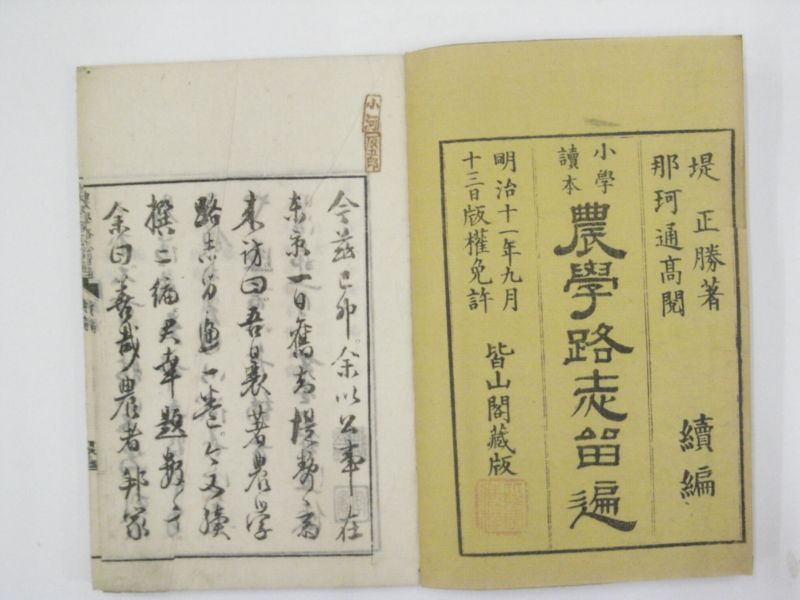 堤 正勝著
那珂通高閲
續編
小學
讀本
農學路志留遍
明治十一年九月
十三日版權免許
皆山閣藏版
小河
今茲己卯余以公事在
東京一日舊知堤勢
来訪曰吾曩著農學
路志留遍一巻今又續
撰二編君幸題數言
余曰善哉農者邦家